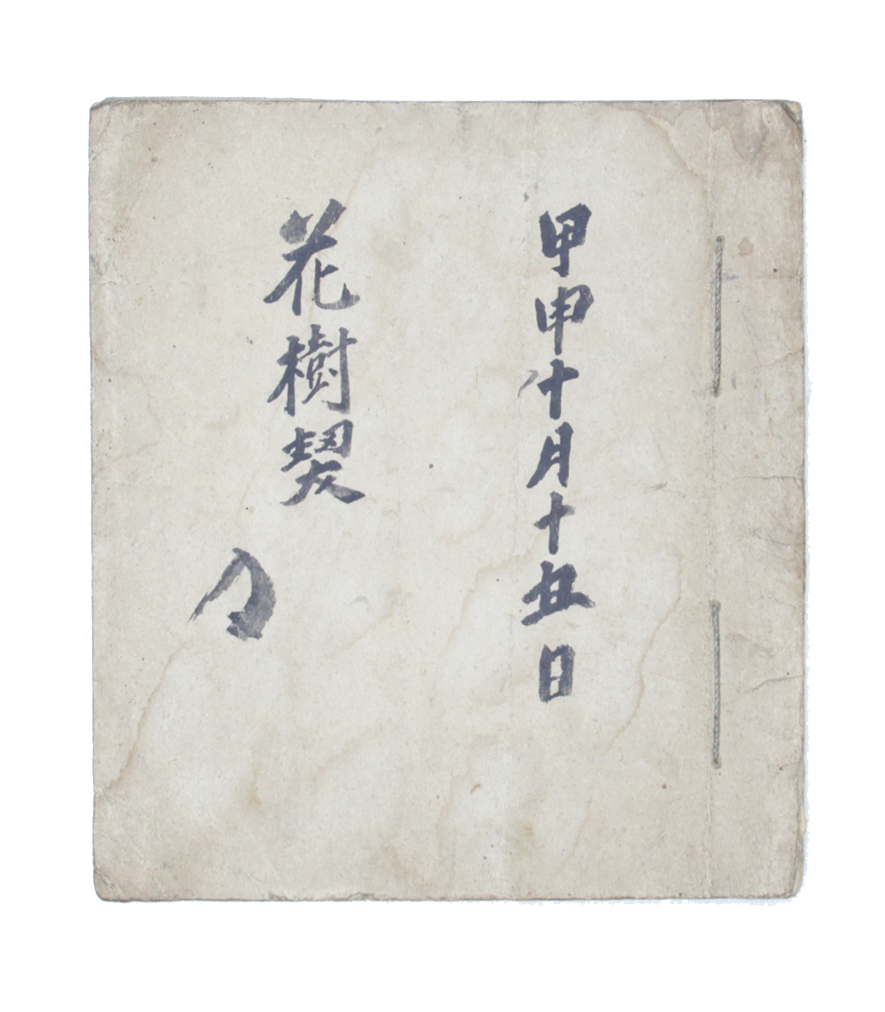 甲申十月十五日
花樹契